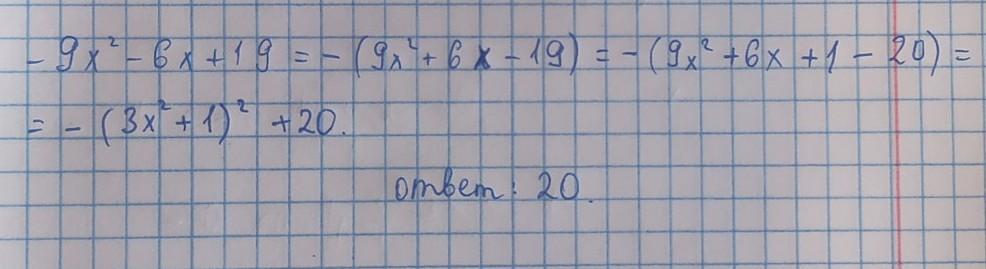 - 9x² - 6x + 19 = - (9x² + 6x - 19) = - (9x² + 6x + 1 - 20) =
= - (3x² + 1)² + 20.
ответ: 20.